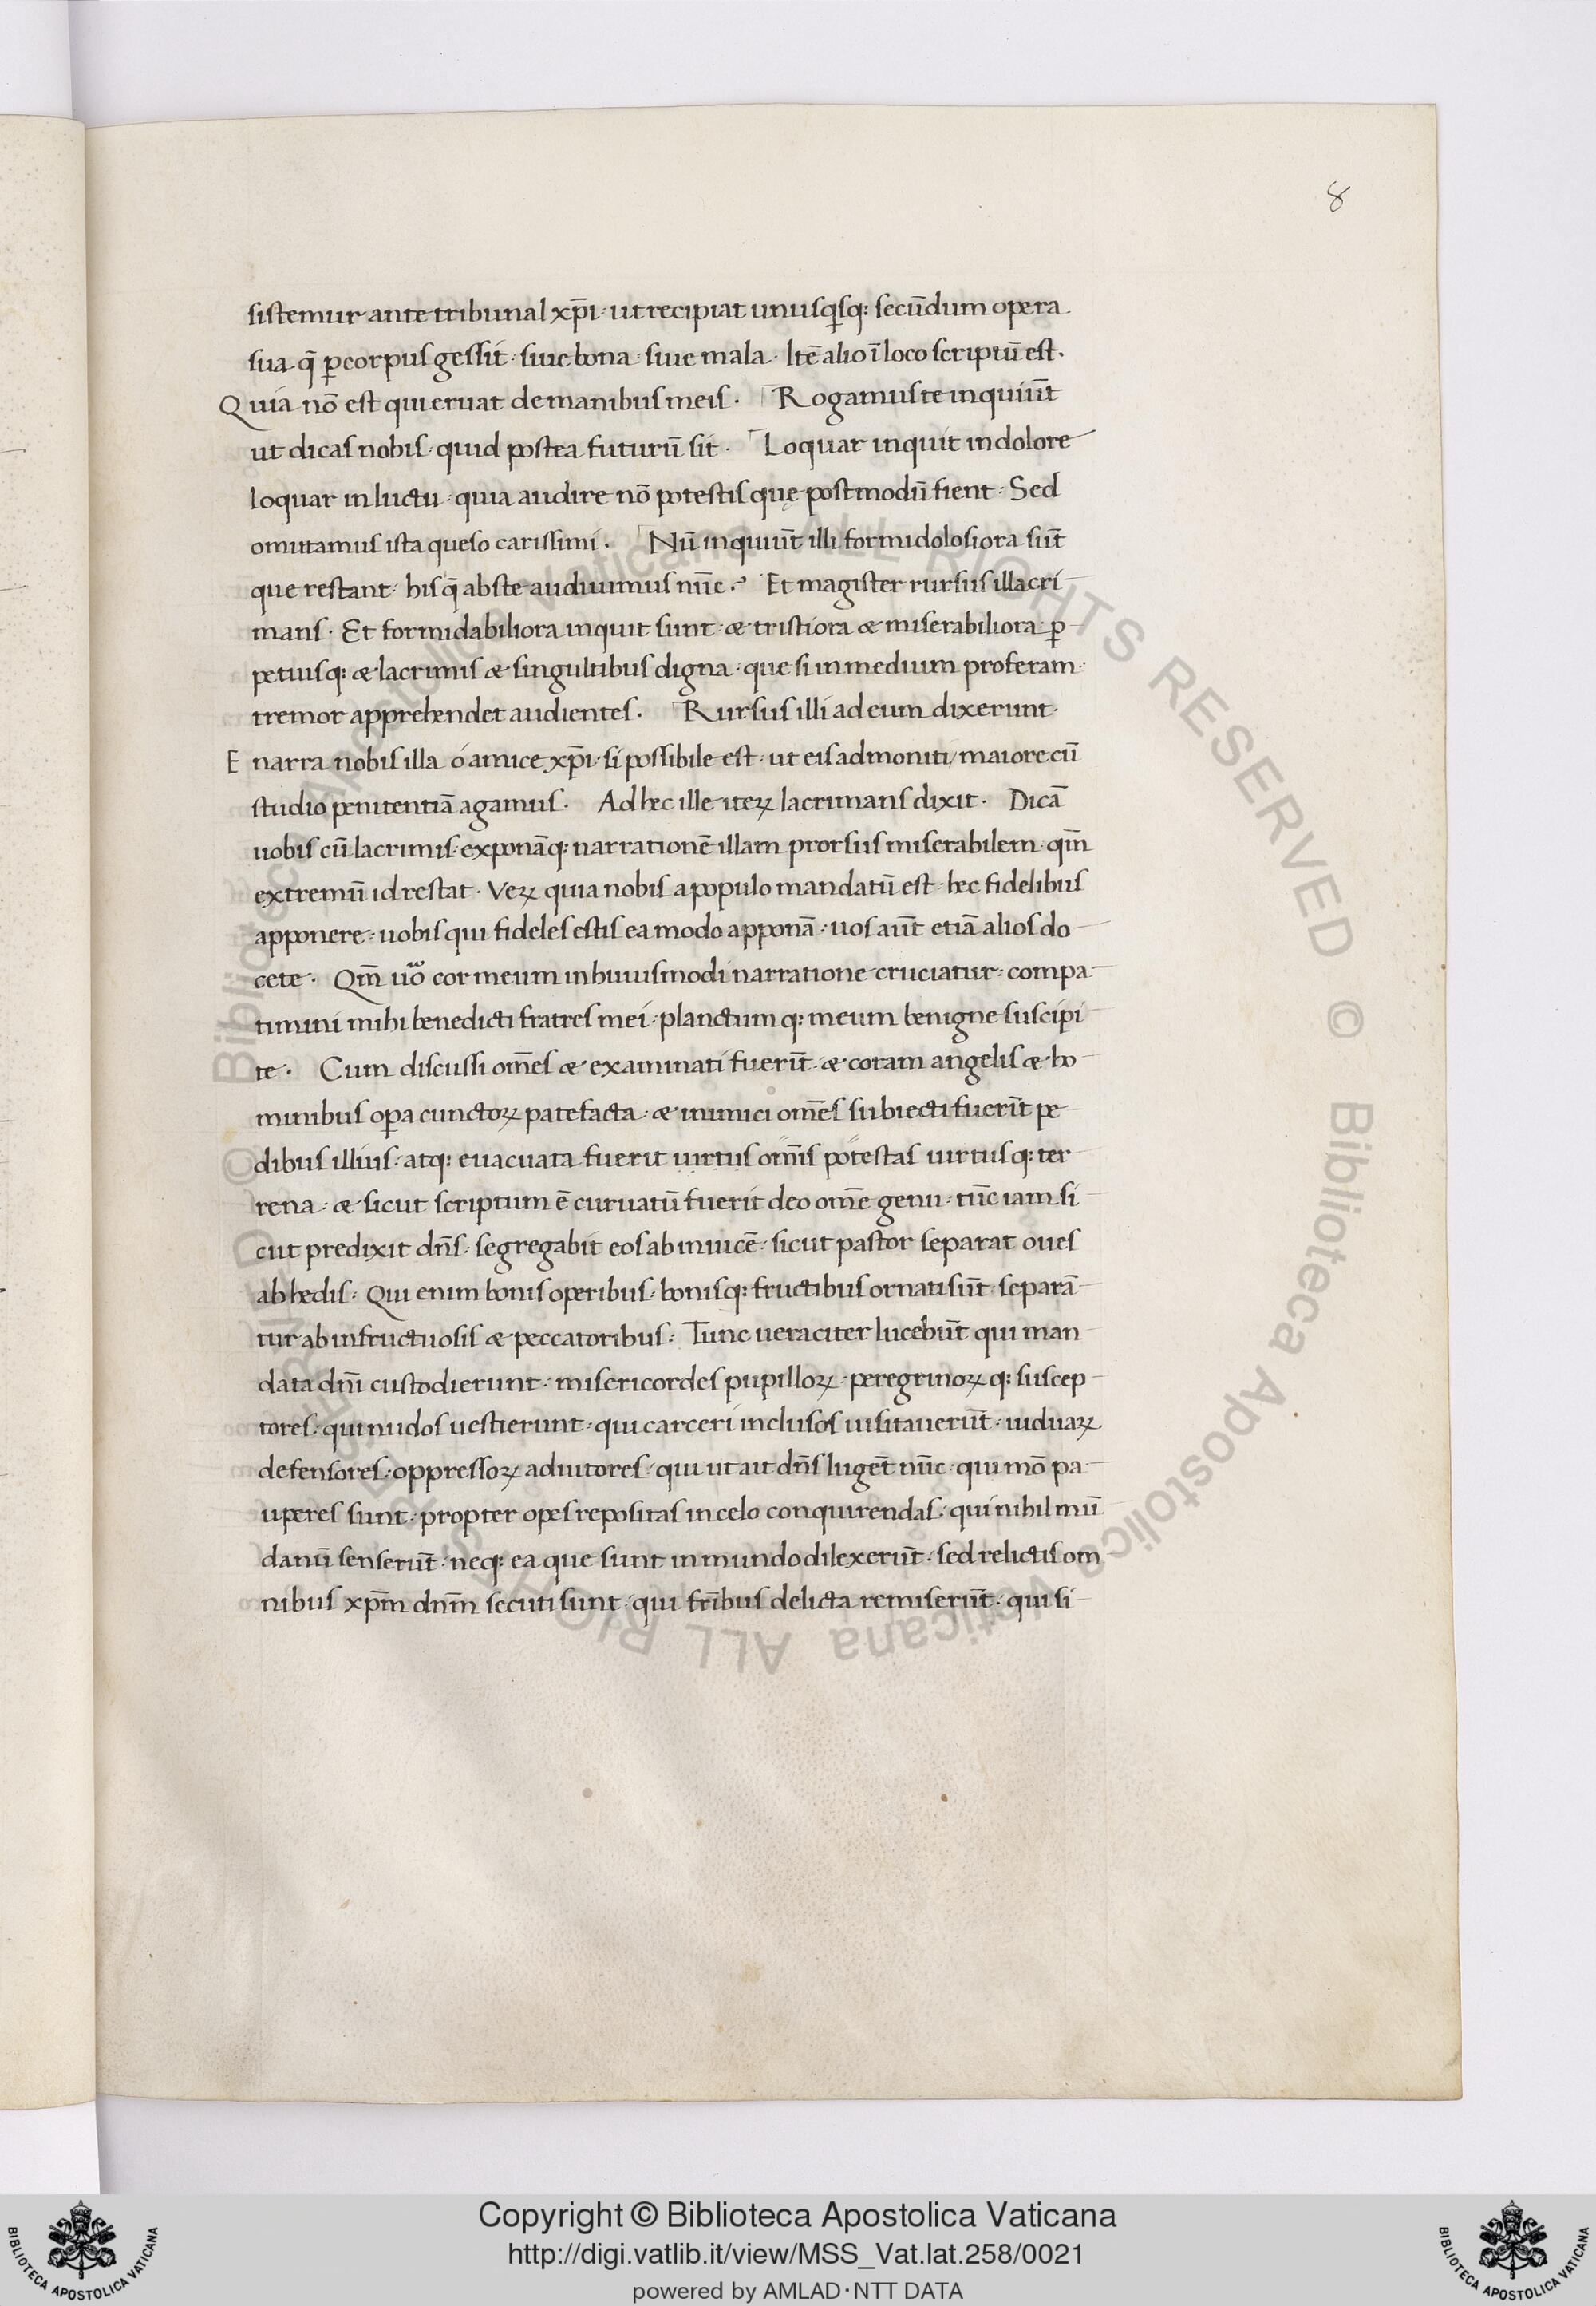 8
sistemur ante tribunal xp̄i · ut recipiat unusq̄sq: secūdum opera
sua · q̄ ꝑ corpus gessit · siue bona · siue mala · Itē alio ī loco scriptū est.
Quia nō est qui eruat de manibus meis · Rogamus te inquiūt
ut dicas nobis · quid postea futurū sit · Loquar inquit in dolore
loquar in luctu · quia audire nō potestis quę postmodū fient · Sed
omittamus ista queso carissimi · Nū inquiūt illi formidolosiora sūt
que restant · his q̄ abs te audiuimus nūc ·? Et magister rursus illacri
mans · Et formidabiliora inquit sunt · & tristiora & miserabiliora · ꝑ
petuisq: & lacrimis & singultibus digna · que si in medium proferam ·
tremor apprehendet audientes · Rursus illi ad eum dixerunt ·
Enarra nobis illa ó amice xp̄i · si possibile est · ut eis admoniti / maiore cū
studio penitentiā agamus · Ad hec ille iteꝝ lacrimans dixit · Dicā
uobis cū lacrimis · exponāq: narrationē illam prorsus miserabilem · qm̄
extremū id restat · Veꝝ quia nobis a populo mandatū est · hec fidelibus
apponere · uobis qui fideles estis ea modo apponā · uos aūt etiā alios do
cete · Qm̄ uo᷒ cor meum in huiusmodi narratione cruciatur · compa
timini mihi benedicti fratres mei · planctum q: meum benigne suscipi
te · Cum discussi om̄es & examinati fuerīt · & coram angelis & ho
minibus oꝑa cunctoꝝ patefacta · & inimici om̄es subiecti fuerīt pe
dibus illius · atq: euacuata fuerit uirtus om̄is potestas uirtusq: ter
rena · & sicut scriptum ē curuatū fuerit deo om̄e genu · tūc iam si
cut predixit dn̄s · segregabit eos ab inuicē · sicut pastor separat oues
ab hedis · Qui enim bonis operibus · bonisq: fructibus ornati sūt · separā
tur ab infructuosis & peccatoribus · Tunc ueraciter lucebūt qui man
data dn̄i custodierunt · misericordes pupilloꝝ · peregrinoꝝ q: suscep
tores · qui nudos uestierunt · qui carceri inclusos uisitauerūt · uiduaꝝ
defensores · oppressoꝝ adiutores · qui ut ait dn̄s lugēt nūc · qui mō pa
uperes sunt · propter opes repositas in celo conquirendas · qui nihil mū
danū senserūt · neq: ea que sunt in mundo dilexerūt · sed relictis om
nibus xp̄m dn̄m secuti sunt · qui fr̄ibus delicta remiserūt · qui si
© Biblioteca Apostolica Vaticana ALL RIGHTS RESERVED © Biblioteca Apostolica Vaticana ALL RIGHTS RESERVED
BIBLIOTECA APOSTOLICA VATICANA
Copyright © Biblioteca Apostolica Vaticana
http://digi.vatlib.it/view/MSS_Vat.lat.258/0021
powered by AMLAD · NTT DATA
BIBLIOTECA APOSTOLICA VATICANA